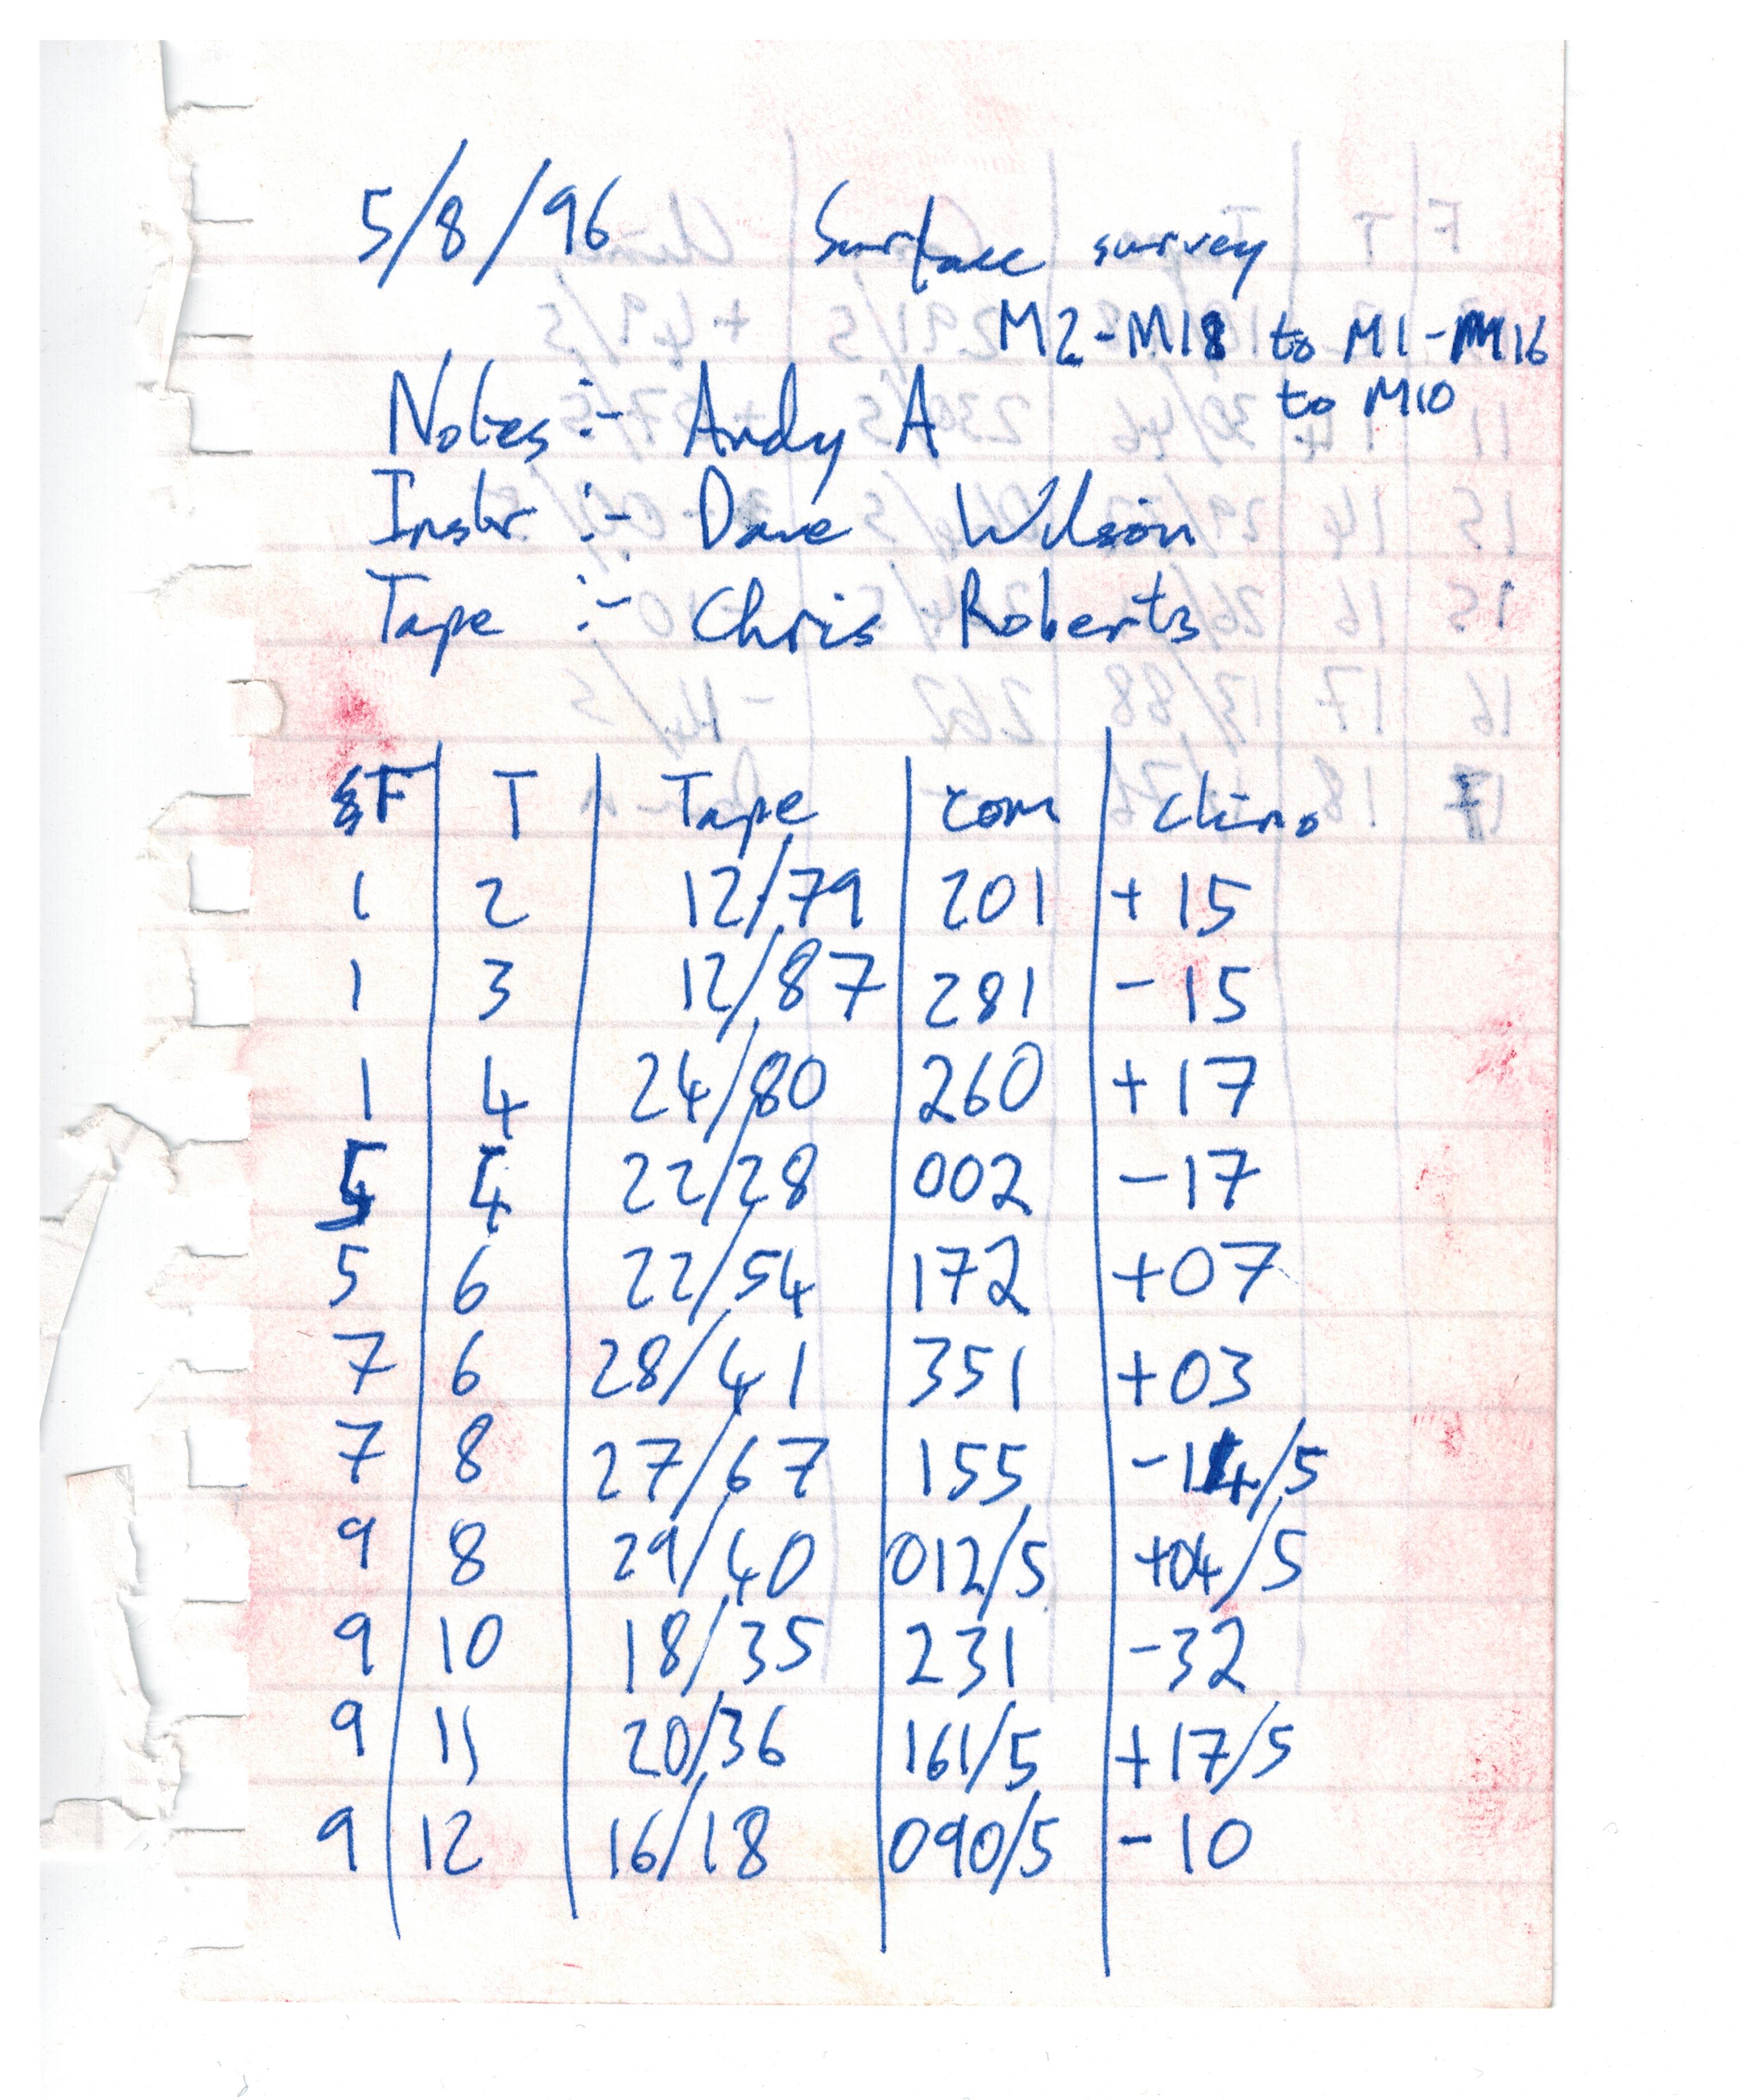 5/8/96 Surface survey
M2-M18 to M1-M16
to M10
Notes :- Andy A
Instr :- Dave Wilson
Tape :- Chris Roberts
F T Tape com Clino
1 2 12/79 201 +15
1 3 12/87 281 -15
1 4 24/80 260 +17
5 4 22/28 002 -17
5 6 22/54 172 +07
7 6 28/41 351 +03
7 8 27/67 155 -14/5
9 8 29/40 012/5 +04/5
9 10 18/35 231 -32
9 11 20/36 161/5 +17/5
9 12 16/18 090/5 -10